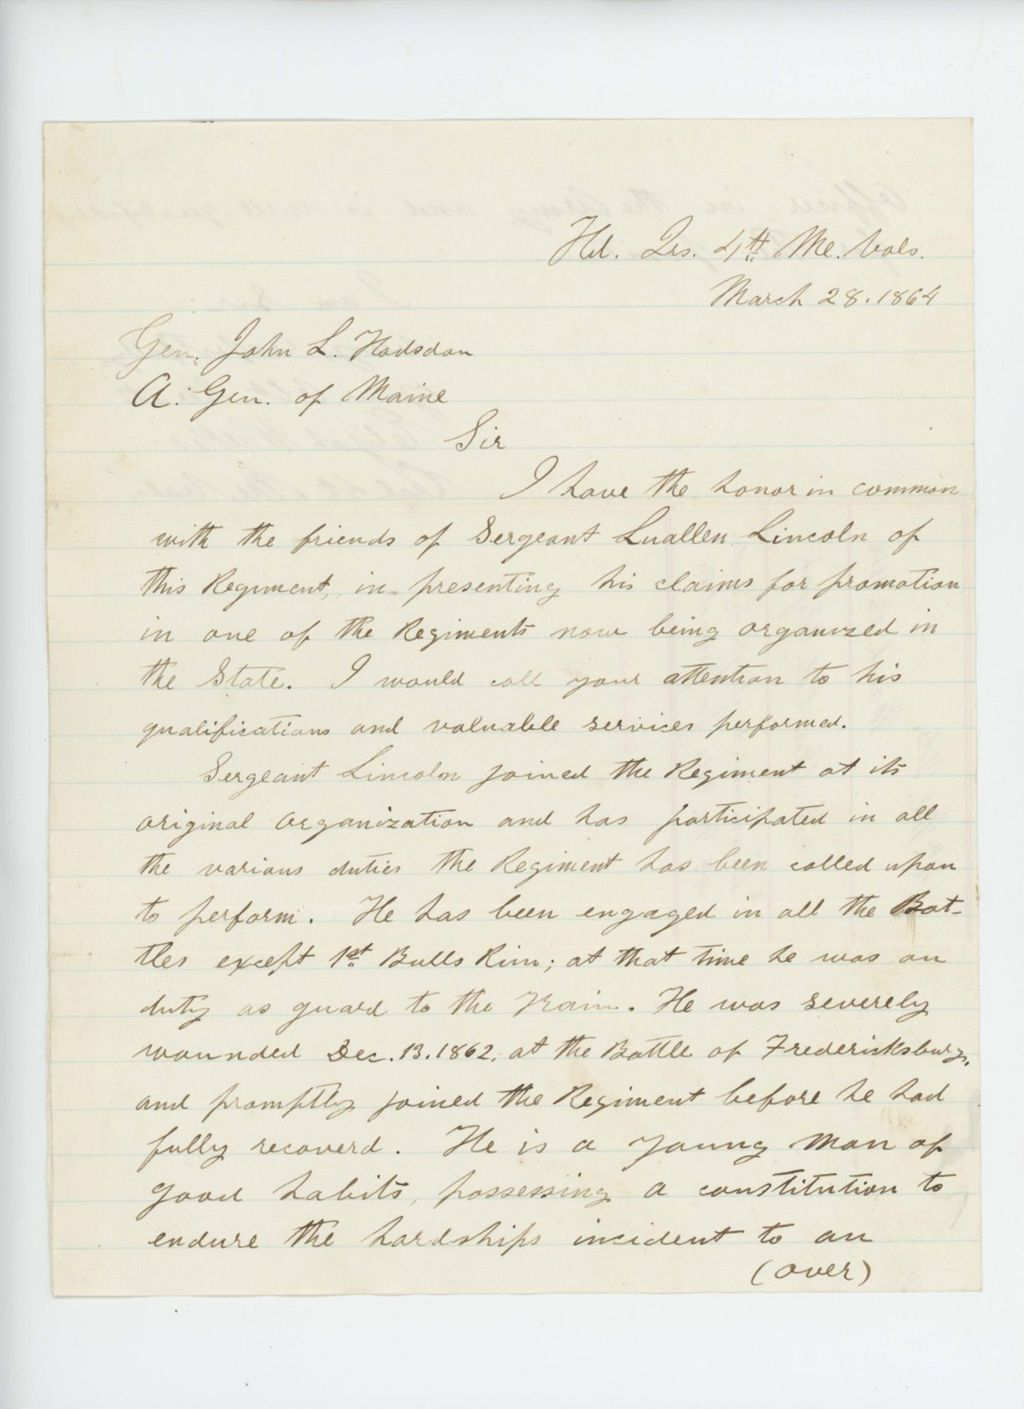 Hd. Qrs. 4th Me. Vols.
March 28. 1864
Gen. John L. Hodsdon
A. Gen. of Maine
Sir
I have the honor in common
with the friends of Sergeant Luallen Lincoln of
this Regiment, in presenting his claims for promotion
in one of the Regiments now being organized in
the State. I would call your attention to his
qualifications and valuable services performed.
Sergeant Lincoln joined the Regiment at its
original organization and has participated in all
the various duties the Regiment has been called upon
to perform. He has been engaged in all the Bat-
tles except 1st Bulls Run; at that time he was on
duty as guard to the Train. He was severely
wounded Dec. 13. 1862. at the Battle of Fredericksburg,
and promptly joined the Regiment before he had
fully recoverd. He is a young man of
good habits, possessing a constitution to
endure the hardships incident to an
(over)